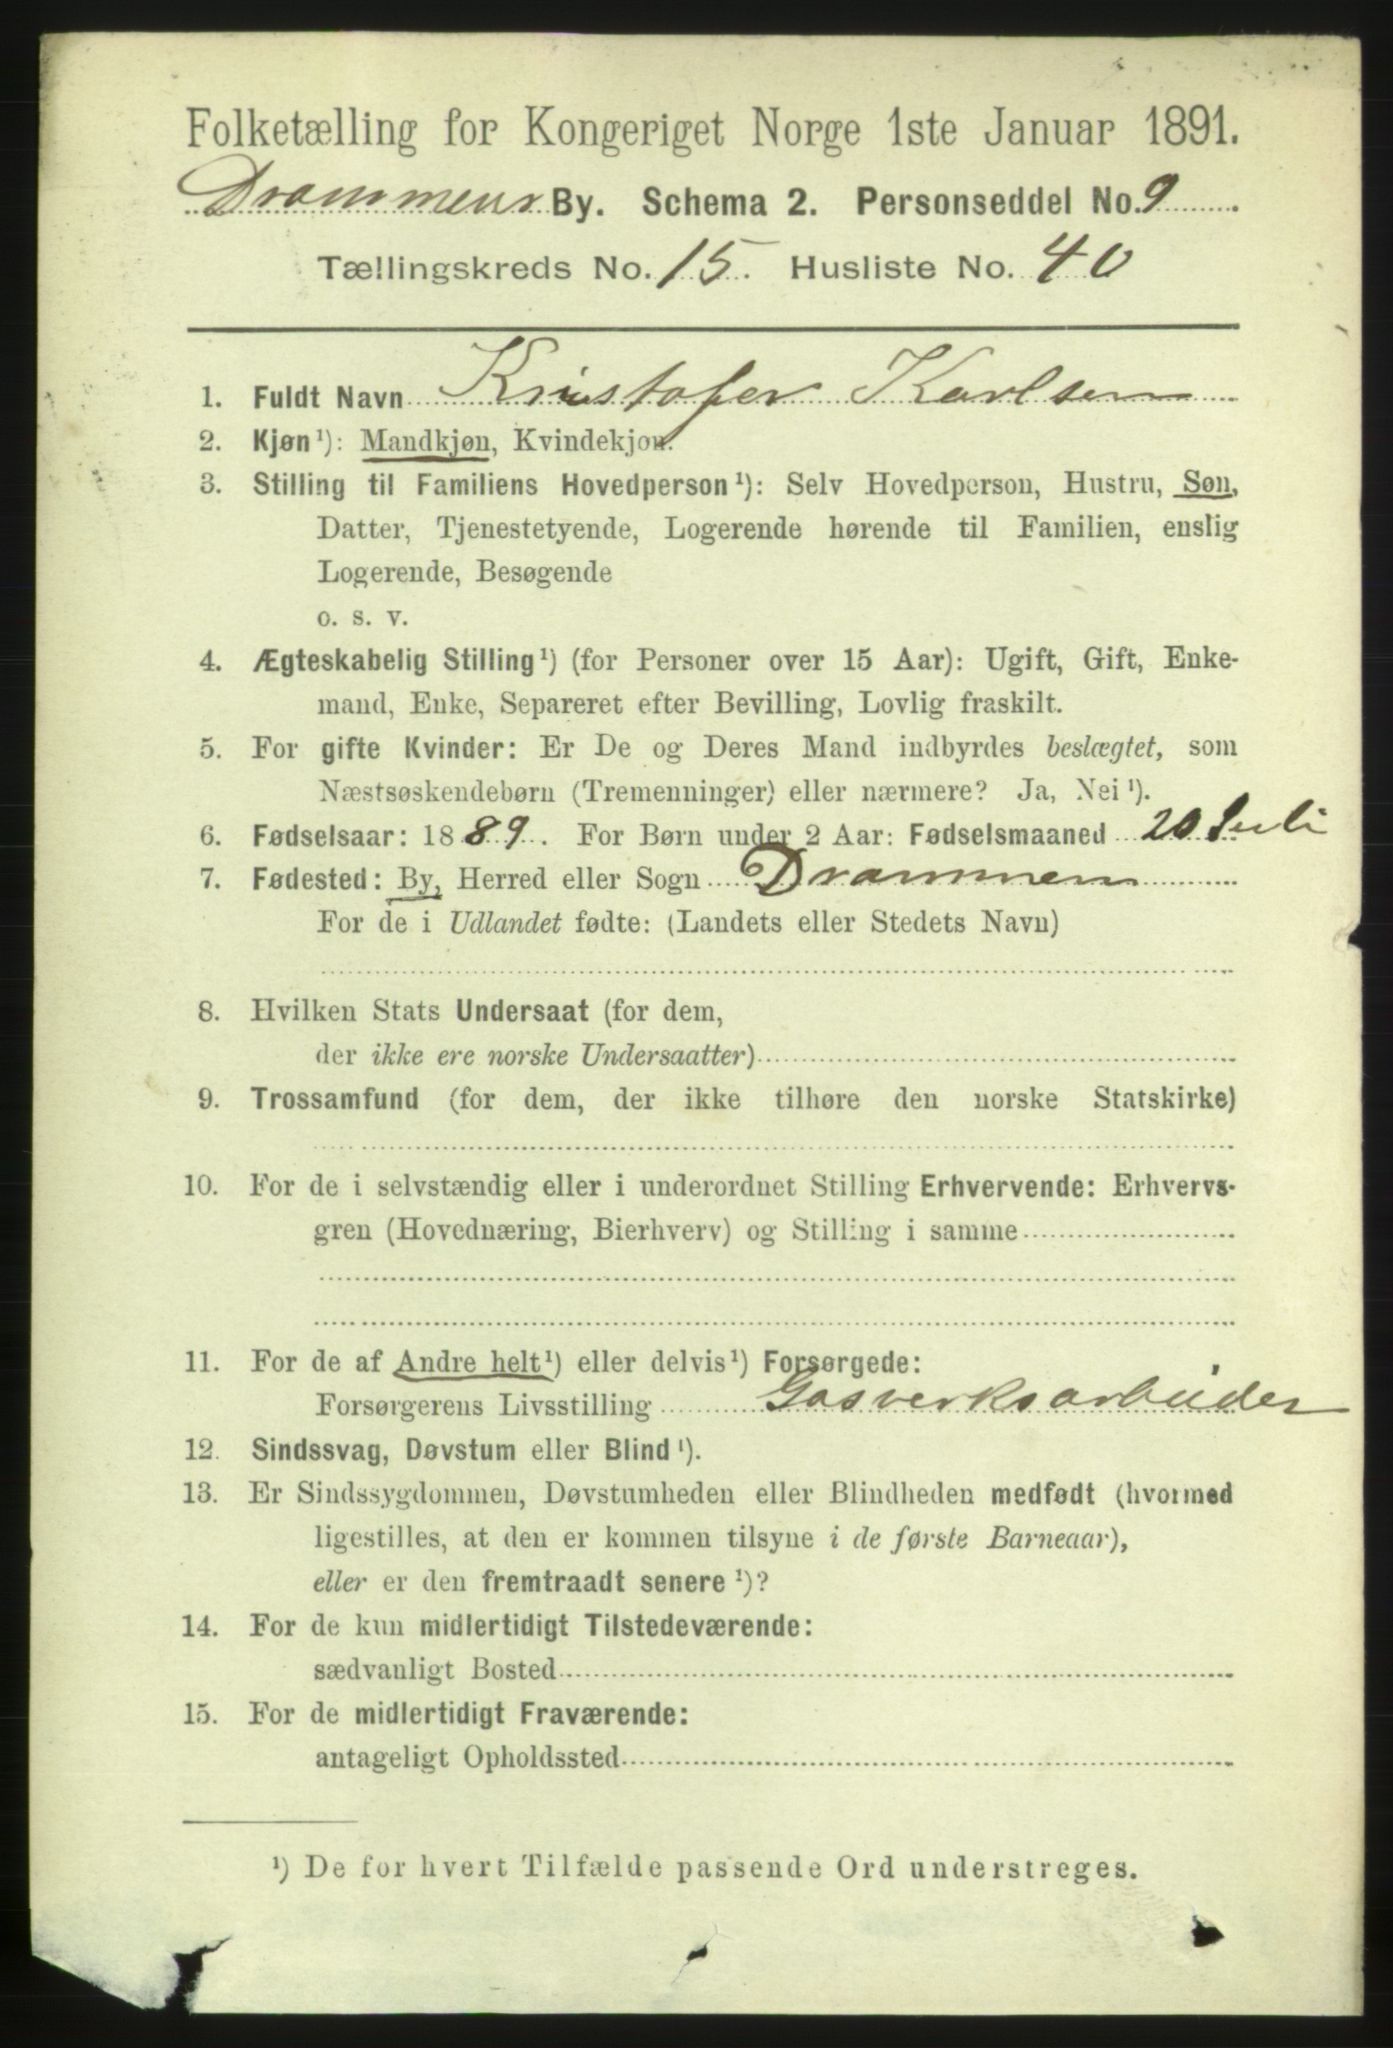 Folketælling for Kongeriget Norge 1ste Januar 1891.
Drammens By. Schema 2. Personseddel No. 9
Tællingskreds No. 15. Husliste No. 40
1. Fuldt Navn Kristofer Karlsen
2. Kjøn¹): Mandkjøn, Kvindekjøn.
3. Stilling til Familiens Hovedperson¹): Selv Hovedperson, Hustru, Søn,
Datter, Tjenestetyende, Logerende hørende til Familien, enslig
Logerende, Besøgende
o. s. v.
4. Ægteskabelig Stilling¹) (for Personer over 15 Aar): Ugift, Gift, Enke-
mand, Enke, Separeret efter Bevilling, Lovlig fraskilt.
5. For gifte Kvinder: Er De og Deres Mand indbyrdes beslægtet, som
Næstsøskendebørn (Tremenninger) eller nærmere? Ja, Nei¹).
6. Fødselsaar: 1889. For Børn under 2 Aar: Fødselsmaaned 20 Juli
7. Fødested: By, Herred eller Sogn Drammen
For de i Udlandet fødte: (Landets eller Stedets Navn)
8. Hvilken Stats Undersaat (for dem,
der ikke ere norske Undersaatter)
9. Trossamfund (for dem, der ikke tilhøre den norske Statskirke)
10. For de i selvstændig eller i underordnet Stilling Erhvervende: Erhvervs-
gren (Hovednæring, Bierhverv) og Stilling i samme
11. For de af Andre helt¹) eller delvis¹) Forsørgede:
Forsørgerens Livsstilling Gasverksarbeider
12. Sindssvag, Døvstum eller Blind¹).
13. Er Sindssygdommen, Døvstumheden eller Blindheden medfødt (hvormed
ligestilles, at den er kommen tilsyne i de første Barneaar),
eller er den fremtraadt senere¹)?
14. For de kun midlertidigt Tilstedeværende:
sædvanligt Bosted
15. For de midlertidigt Fraværende:
antageligt Opholdssted
¹) De for hvert Tilfælde passende Ord understreges.